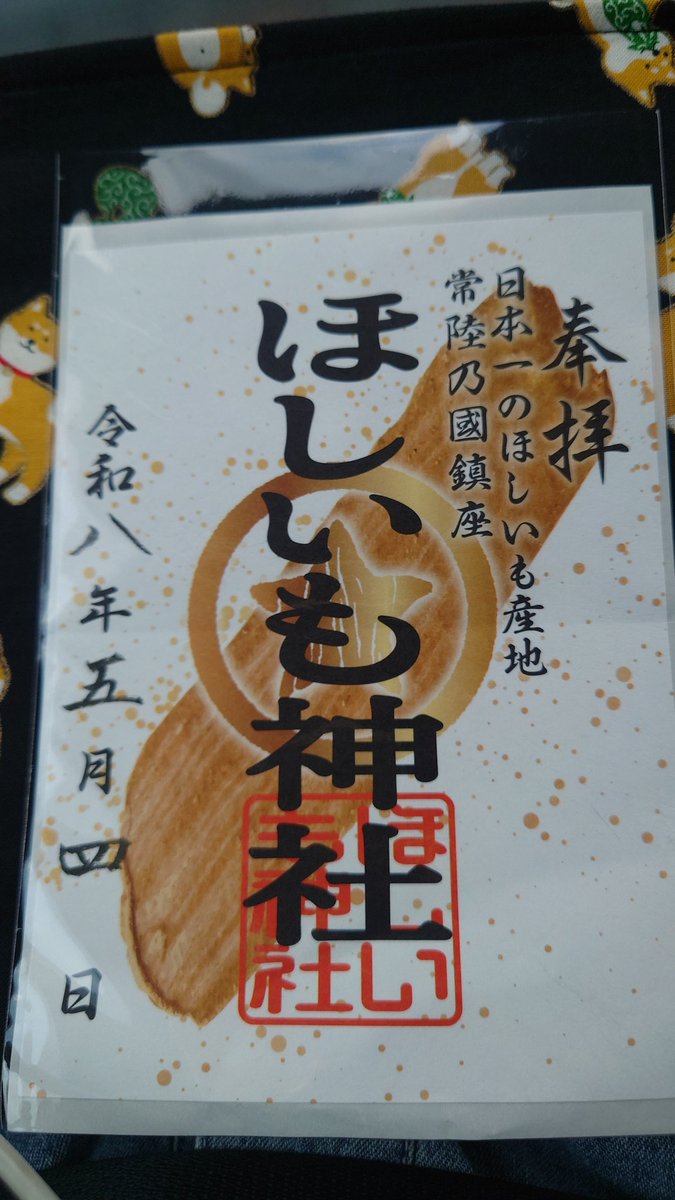 奉拝
日本一のほしいも産地
常陸乃國鎮座
ほしいも神社
令和八年五月四日
ほしい
も神社